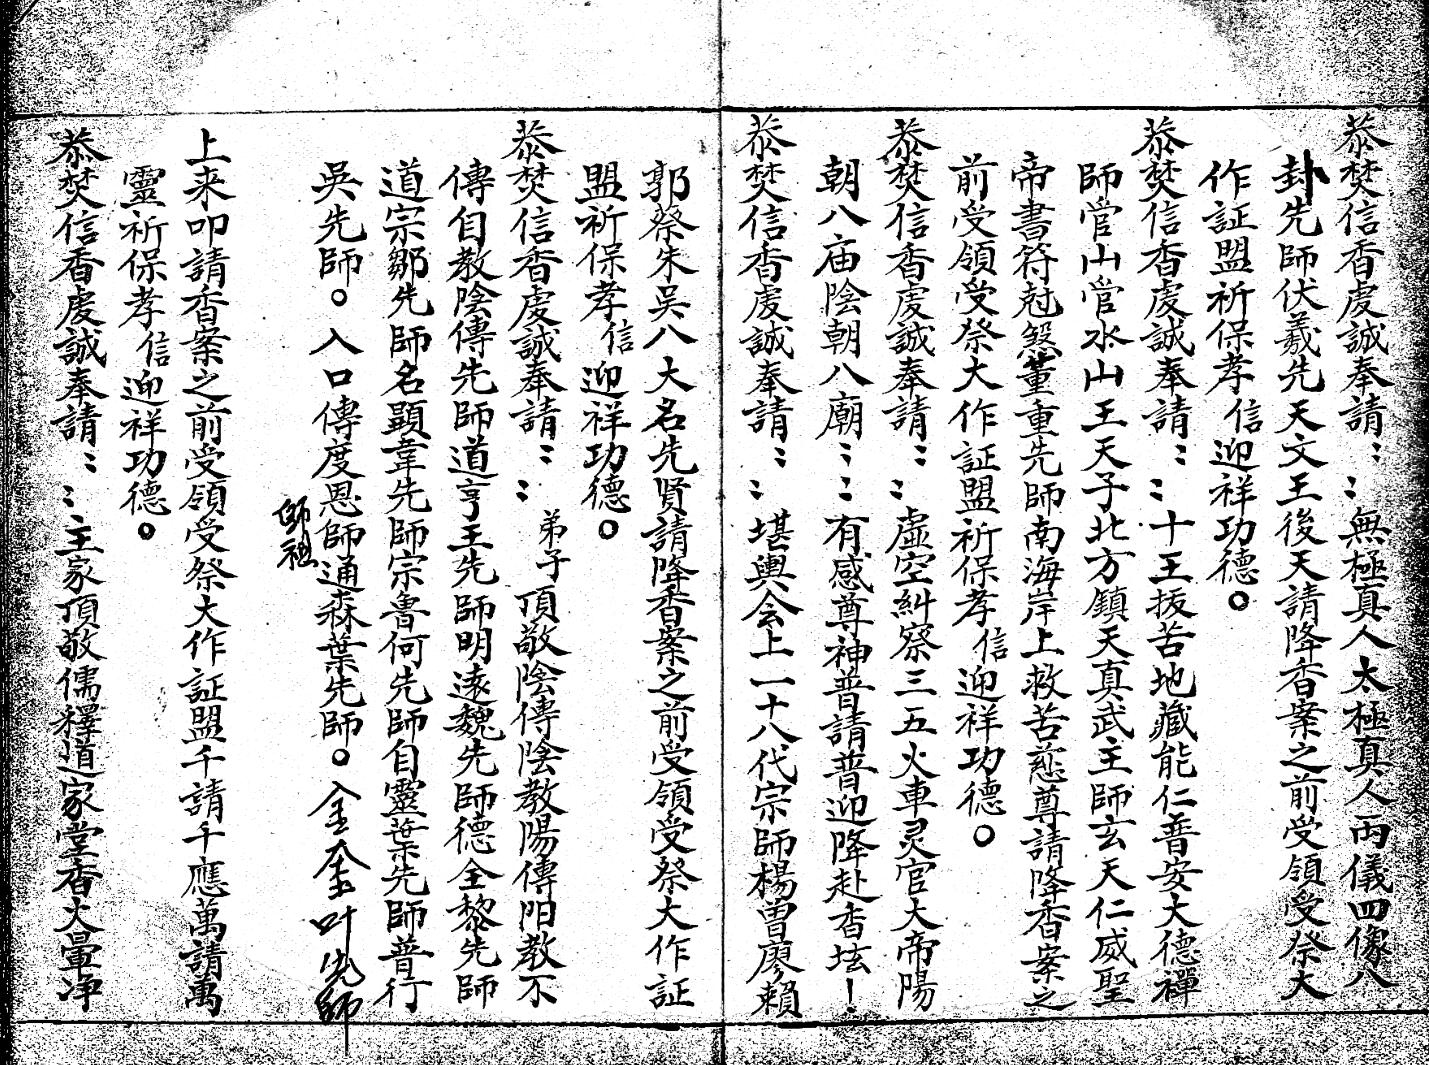 㳟焚信香虔誠奉請：：無極真人太極真人両儀四像八
卦先師伏羲先天文王後天請降香案之前受領受祭大
作証盟祈保孝信迎祥功德。
㳟焚信香虔誠奉請：：十王拔苦地藏能仁普安大德禪
師管山管水山王天子北方鎮天真武主師玄天仁威聖
帝書符尅煞董重先師南海岸上救苦慈尊請降香案之
前受領受祭大作証盟祈保孝信迎祥功德。
㳟焚信香虔誠奉請：：虛空糾察三五火車灵官大帝陽
朝八庙陰朝八廟：：有感尊神普請普迎降赴香坛！
㳟焚信香虔誠奉請：：堪輿会上一十八代宗師楊曽廖賴
郭蔡朱吳八大名先賢請降香案之前受領受祭大作証
盟祈保孝信迎祥功德。
㳟焚信香虔誠奉請：：弟子頂敬陰傳陰教陽傳阳教不
傳自教陰傳先師道亨王先師明遠魏先師德全黎先師
道宗鄒先師名顯韋先師宗魯何先師自靈葉先師普行
吳先師。入口傳度恩師通森葉先師。金奎叶先師
師祖
上来叩請香案之前受領受祭大作証盟千請千應萬請萬
靈祈保孝信迎祥功德。
恭焚信香虔誠奉請：：主家頂敬儒釋道家堂香火暈净